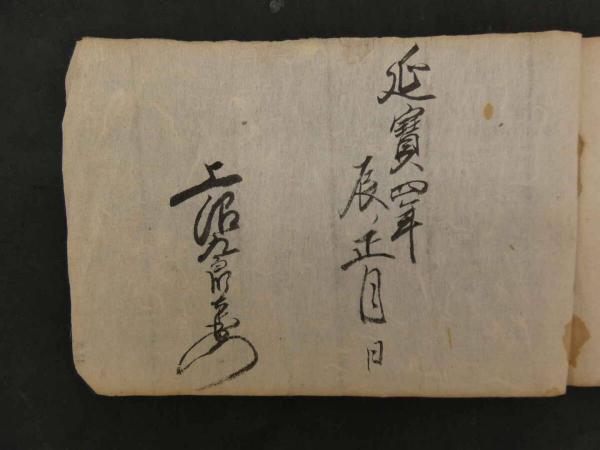 延寳四年
辰ノ正月日
上沼九郎兵衛